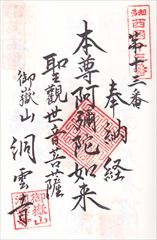 第十三番
奉納経
本尊阿彌陀如来
聖觀世音菩薩
御嶽山 洞雲寺
御嶽山